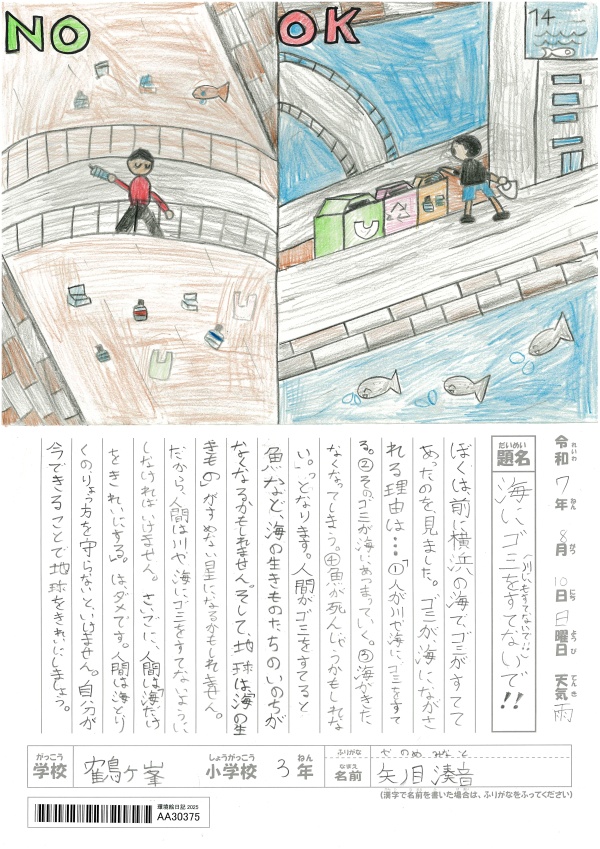 NO
OK
14
令和7年8月10日日曜日 天気雨
れいわ ねん がつ にち ようび てんき
だいめい
題名 海にゴミをすてないで!!
(川にもすてないで!!)
ぼくは、前に横浜の海で、ゴミがすてて
あったのを、見ました。ゴミが、海にながさ
れる理由は…①「人が川や海に、ゴミをすて
る。②そのゴミが海にあつまっていく。③海がきた
なくなってしまう。④魚が死んじゃうかもしれな
い。」となります。人間がゴミをすてると
魚など、海の生きものたちのいのちが
なくなるかもしれません。そして、地球は「海」の生
きものがすめない星になるかもしれません。
だから、人間は川や海にゴミをすてないように、
しなければいけません。さいごに、人間は「海だけ
をきれいにする。」は、ダメです。人間は海とり
くのりょう方を守らないといけません。自分が
今できることで地球をきれいにしましょう。
がっこう しょうがっこう ねん
学校 鶴ケ峯 小学校 3年
ふりがな やのめ みなと
なまえ
名前 矢ノ目 湊音
(漢字で名前を書いた場合は、ふりがなをふってください)
環境絵日記 2025
AA30375